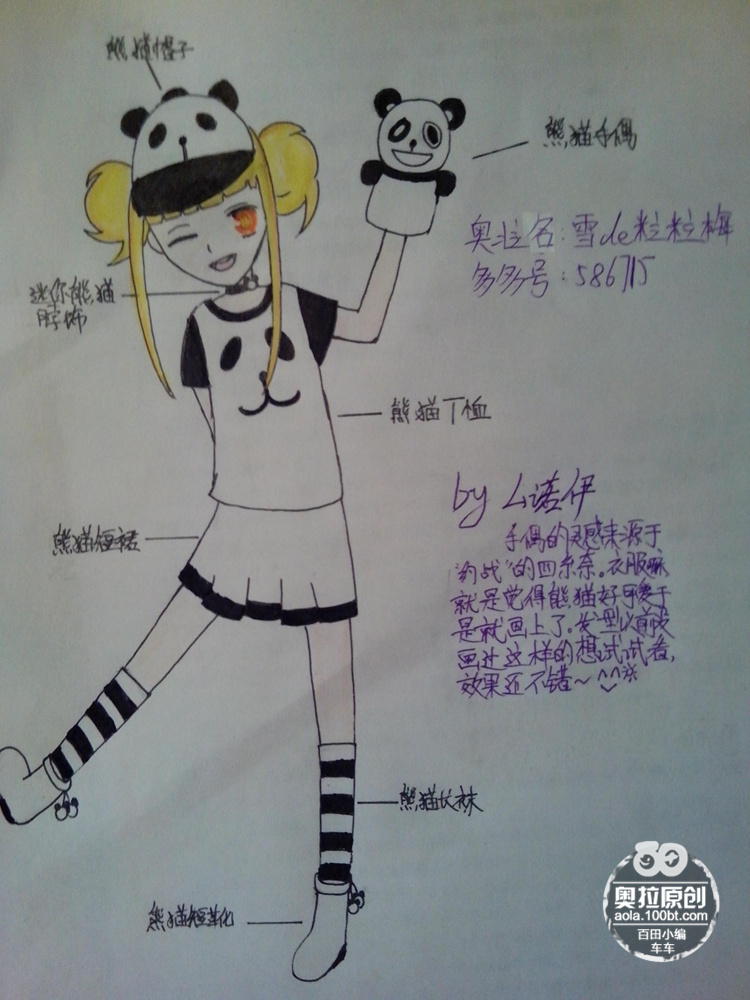 熊猫帽子
熊猫手偶
奥拉名:雪de粒粒梅
多多号:586715
迷你熊猫
脖饰
熊猫T恤
by 厶诺伊
手偶的灵感来源于
"约战"的四糸奈。衣服嘛
就是觉得熊猫好可爱于
是就画上了。发型以前没
画过这样的想试试看,
效果还不错~^^
熊猫短裙
熊猫长袜
熊猫短靴
奥拉原创
aola.100bt.com
百田小编
车车